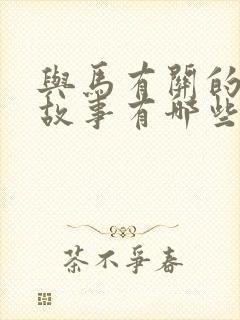 與馬有關的
故事有哪些
茶不爭春